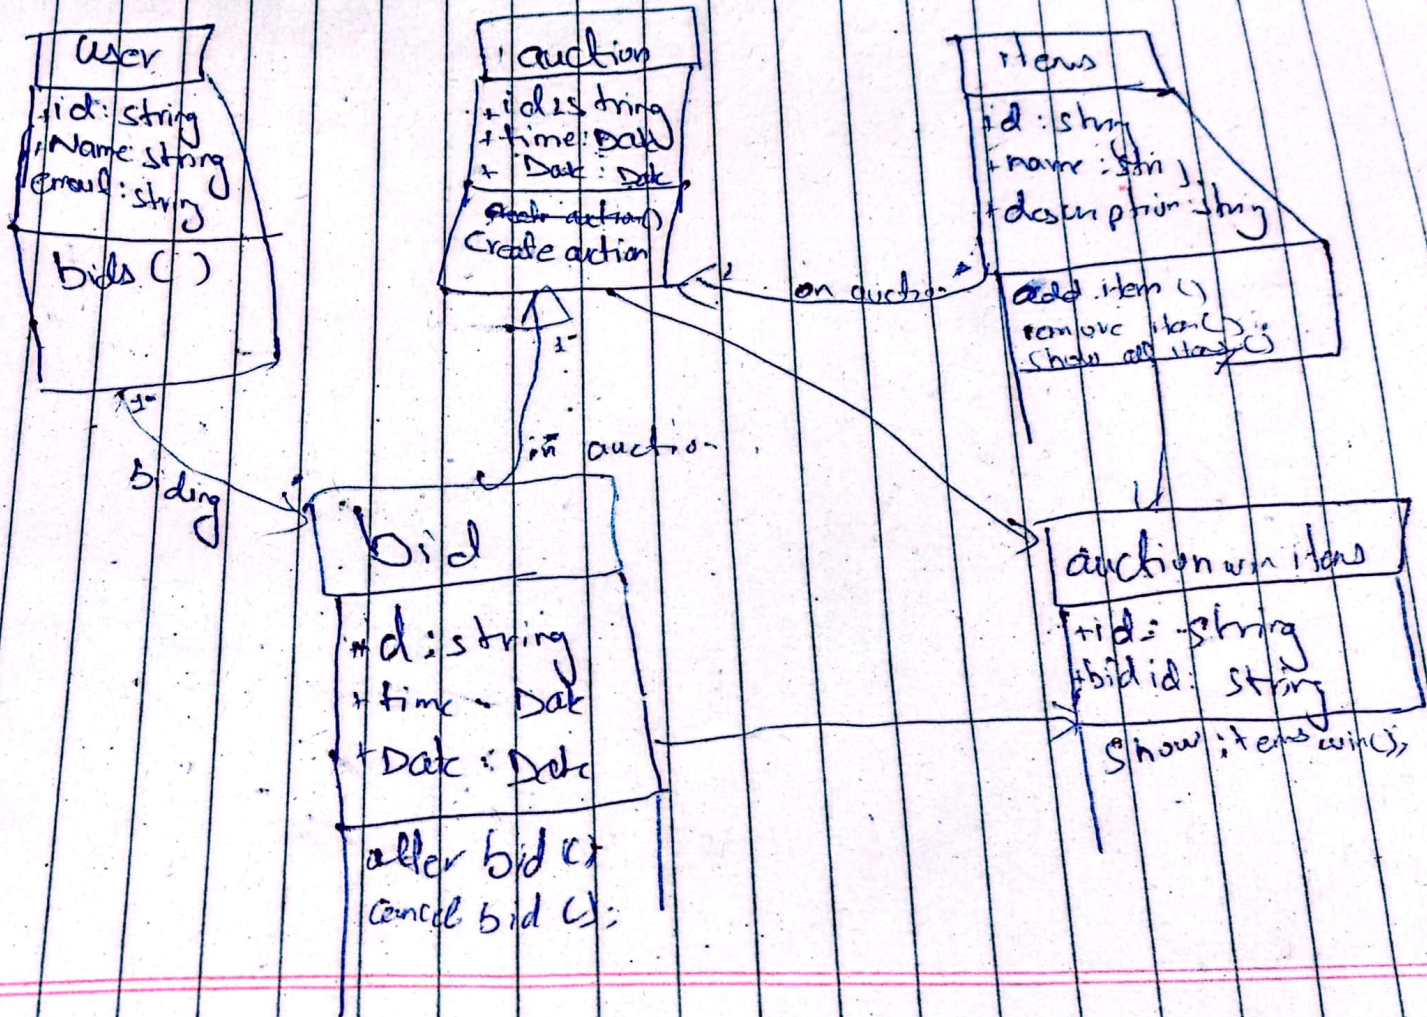 user
+id: string
+Name: string
email: string
bids ( )
auction
+id: string
+time: Date
+ Date: Date
Create auction
items
id: string
+name: Stri
+description: string
add item ()
remove item();
show all items()
on auction
1
1
1
biding
in auctio
bid
+id: string
+ time - Date
+ Date: Date
alter bid ();
Cancel bid ();
auction win items
+id: string
+bid id: string
Show items win();